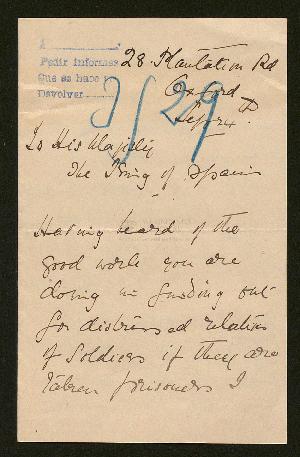 A
Pedir informes
Que se hace
Devolver
28. Plantation Rd
Oxford
Sept 24th
29
To His Majesty
The King of Spain
Having heard of the
good work you are
doing in finding out
for distressed relations
of Soldiers if they are
taken prisoners I